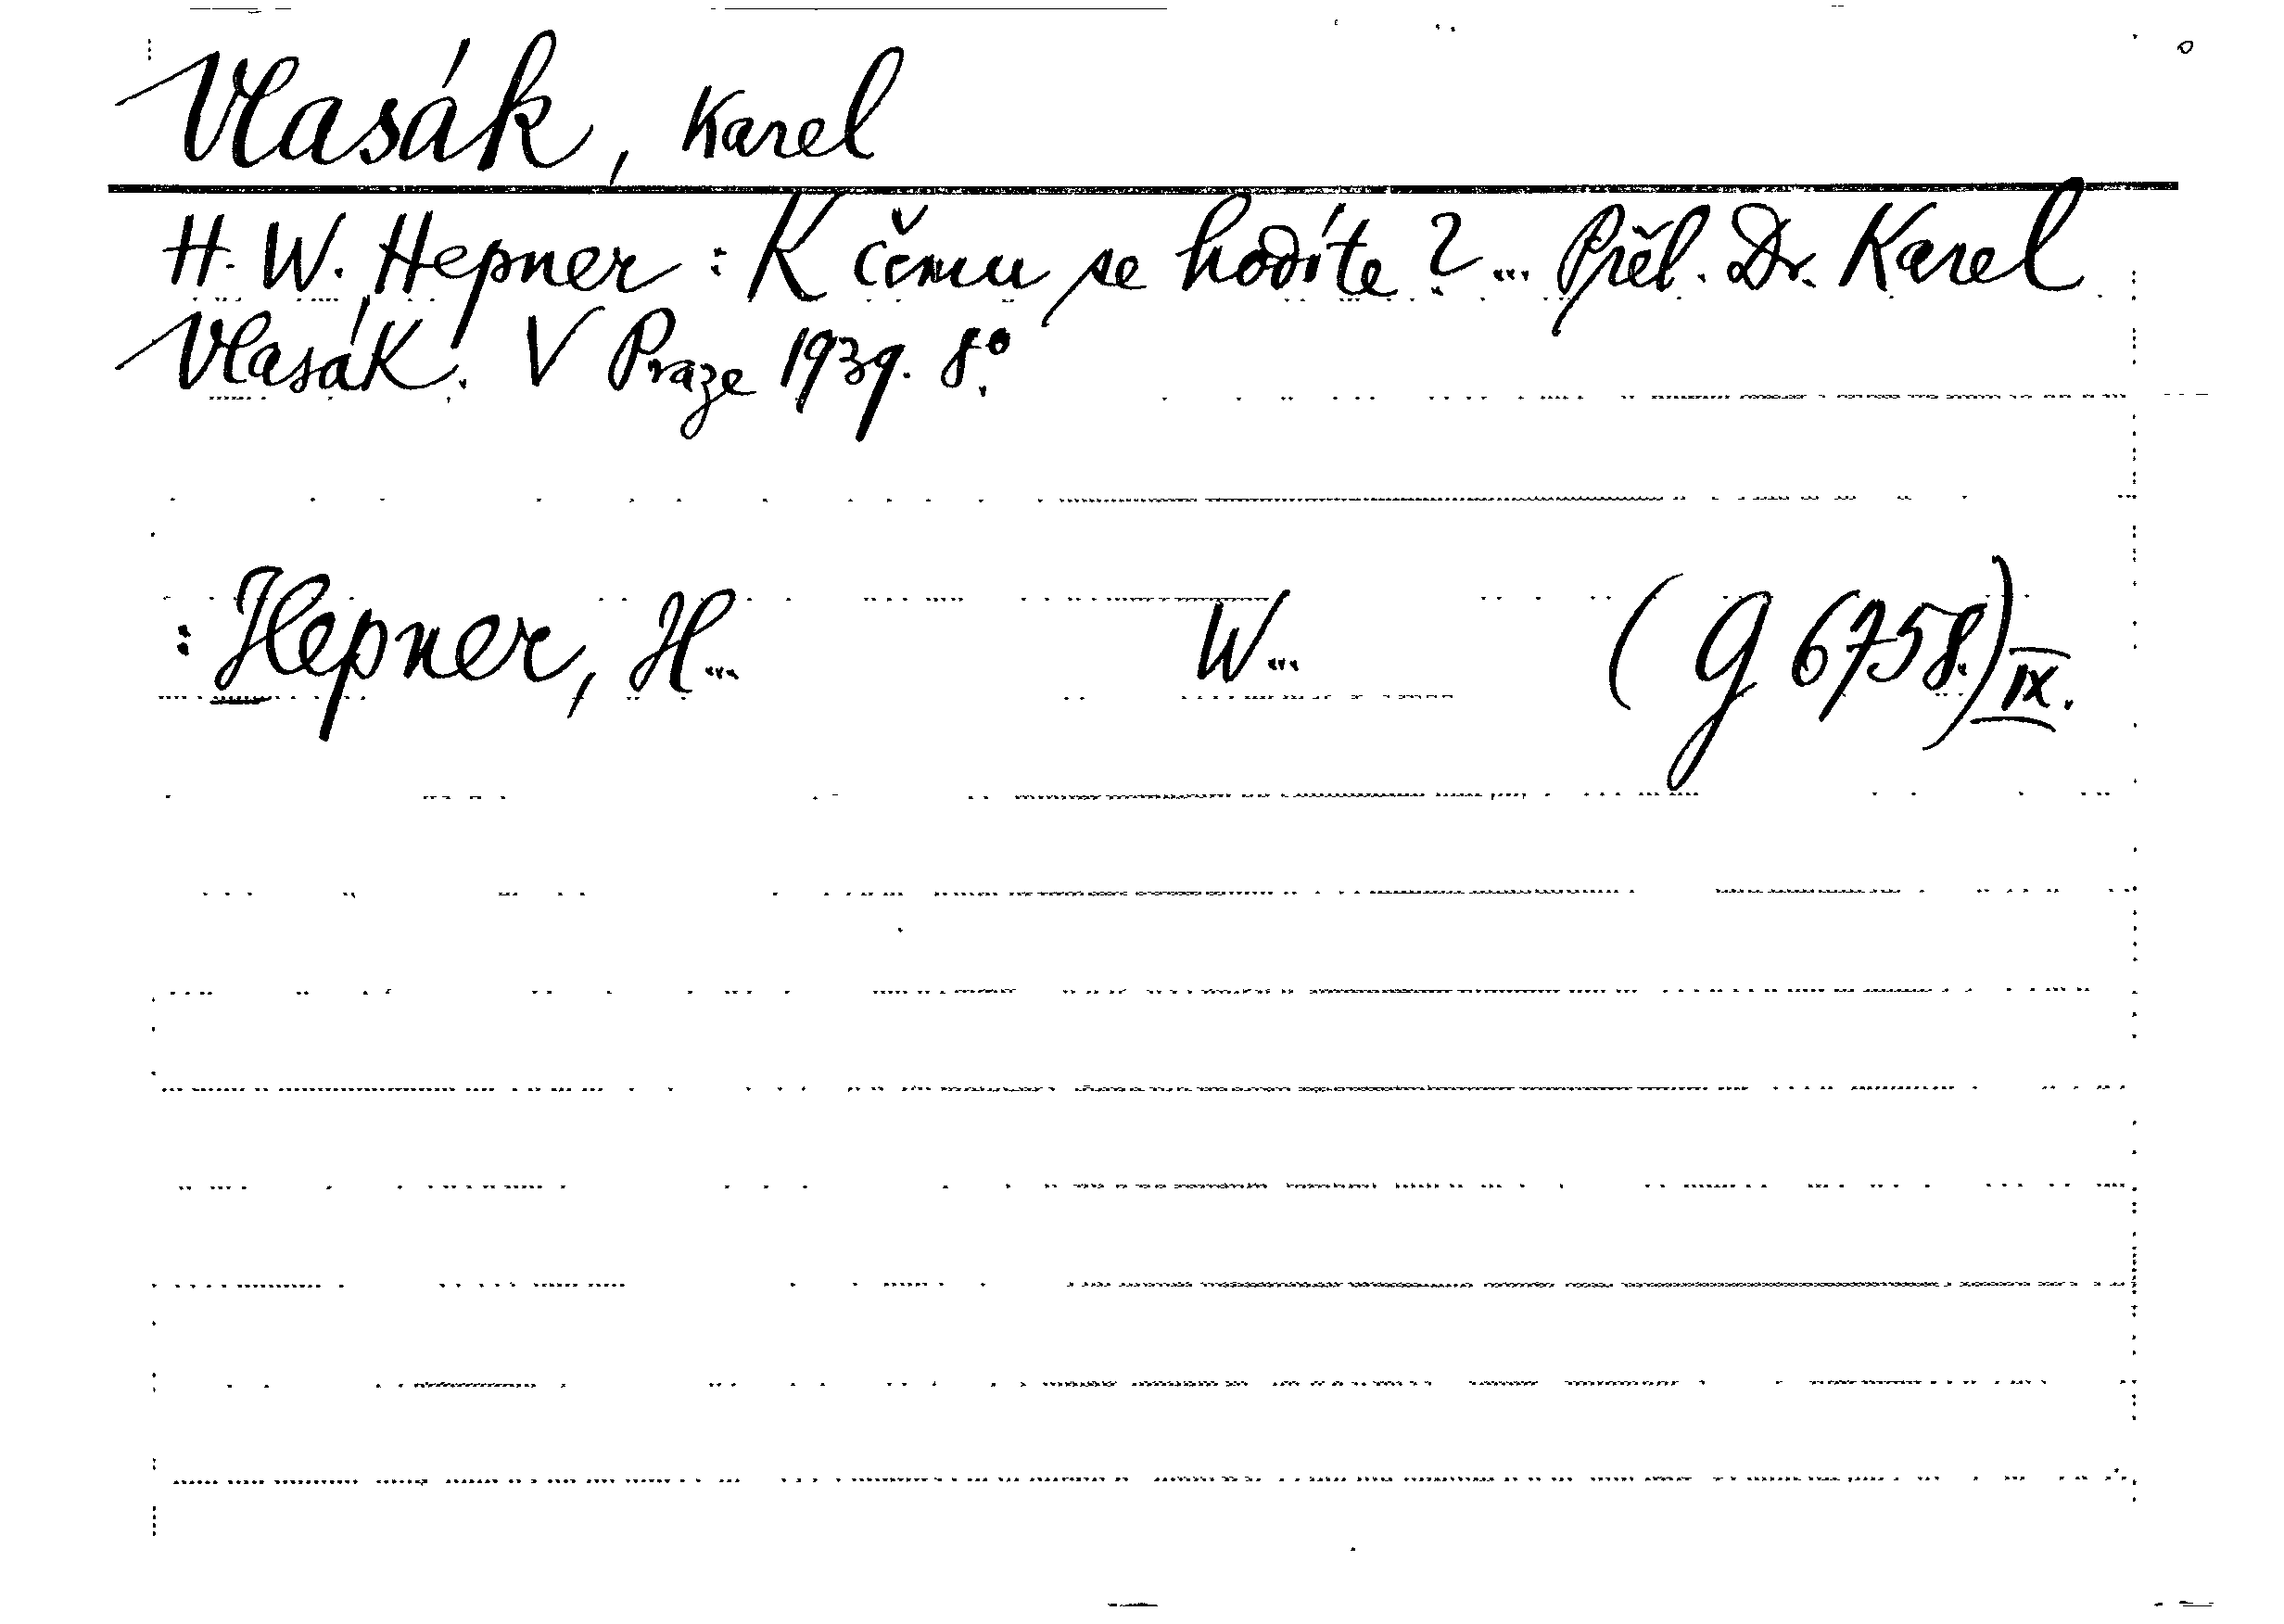 Vlasák, Karel
H. W. Hepner: K čemu se hodíte?... Přěl. Dr. Karel
Vlasák. V Praze 1939. 8°.
: Hepner, H... W... (G 6758.) IX.